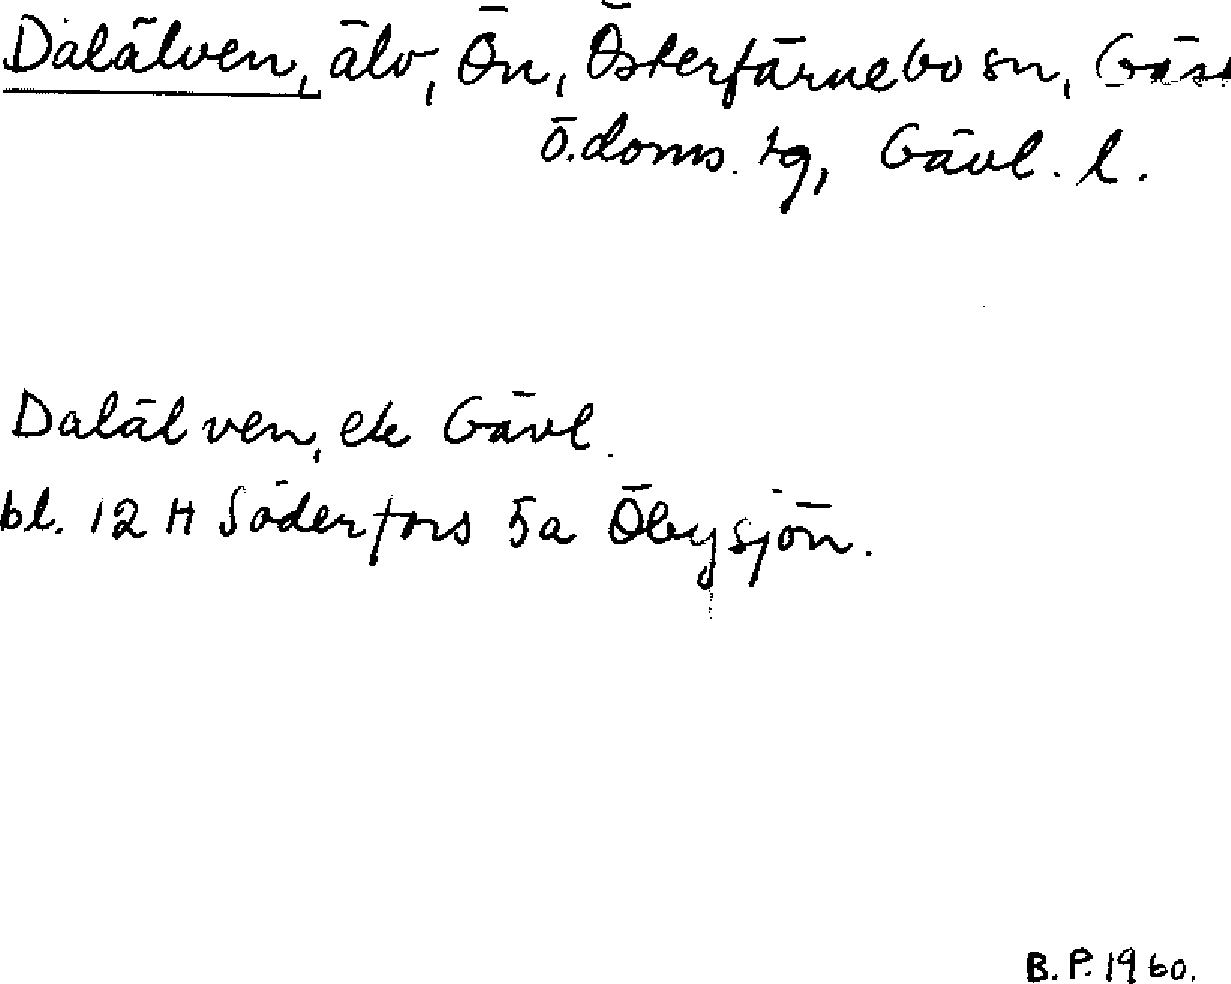 Dalälven, älv, Ön, Österfärnebo sn, Gäst
ö.doms. tg, Gävl. l.
Dalälven, ek Gävl.
bl. 12 H Söderfors 5a Öbysjön.
B.P. 1960.